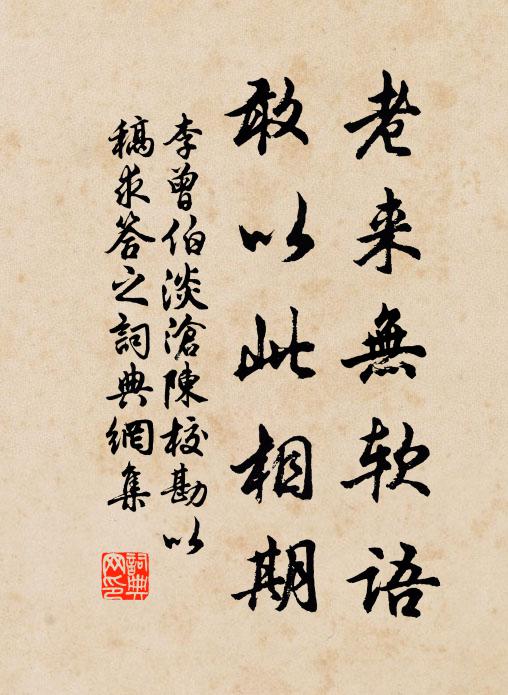 老来無软語
敢以此相期
李曾伯淡滄陳校勘以
稿求答之詞典網集
詞典
网印